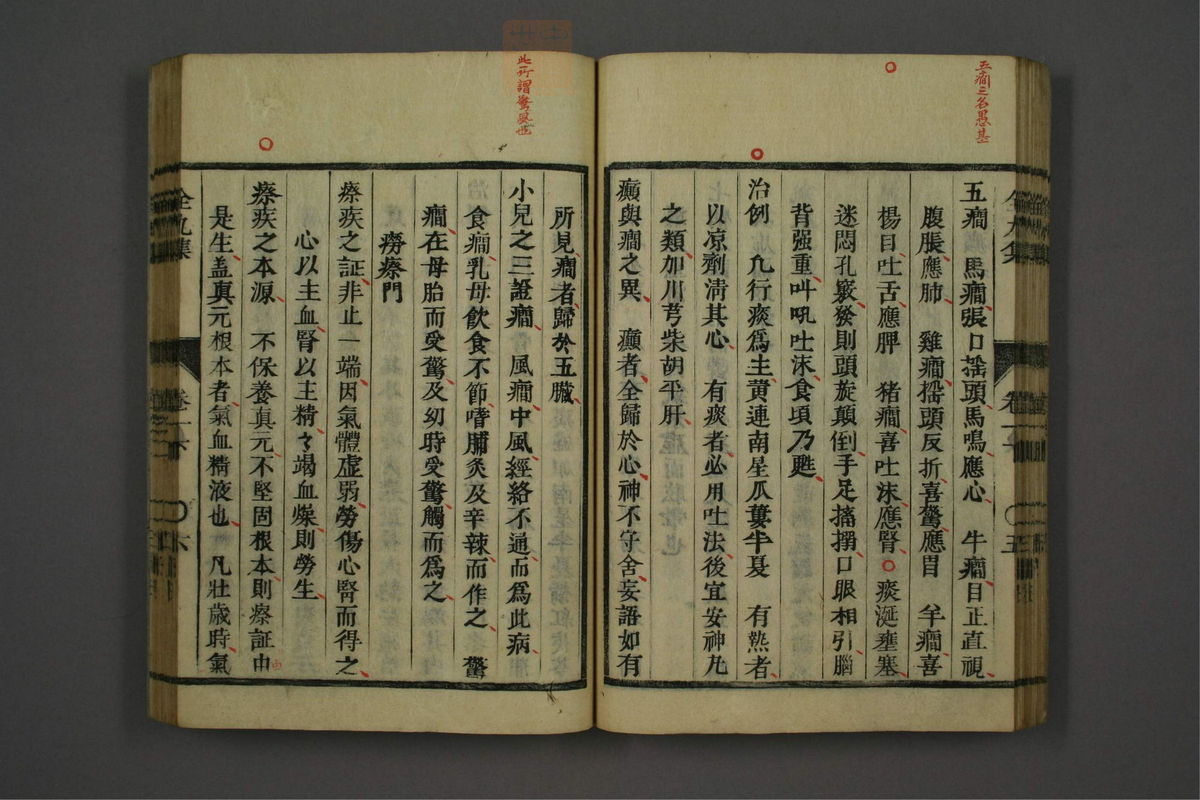 五癇之名愚甚
五癇　馬癇張口搖頭馬鳴應心　牛癇目正直視
腹脹應肺　雞癇搖頭反折喜驚應胃　羊癇喜
楊目吐舌應脾　猪癇喜吐沫應腎　痰涎壅塞
迷悶孔竅發則頭旋顛倒手足搐搦口眼相引腦
背强重叫吼吐沫食頃乃甦
治例　凢行痰爲主黄連南星瓜蔞半夏　有熱者
以凉劑清其心　有痰者必用吐法後宜安神丸
之類加川芎柴胡平肝
癲與癇之異　癲者全歸於心神不守舍妄語如有
此所謂驚風也
所見癇者歸於五臟
小兒之三證癇　風癇中風經絡不通而爲此病
食癇乳母飲食不節嗜脯灸及辛辣而作之　驚
癇在母胎而受驚及幼時受驚觸而爲之
癆瘵門
瘵疾之証非止一端因氣體虛弱勞傷心腎而得之
心以主血腎以主精々竭血燥則勞生
瘵疾之本源　不保養真元不堅固根本則瘵証由
是生盖真元根本者氣血精液也　凡壯歲時氣
全九集
卷一六
六